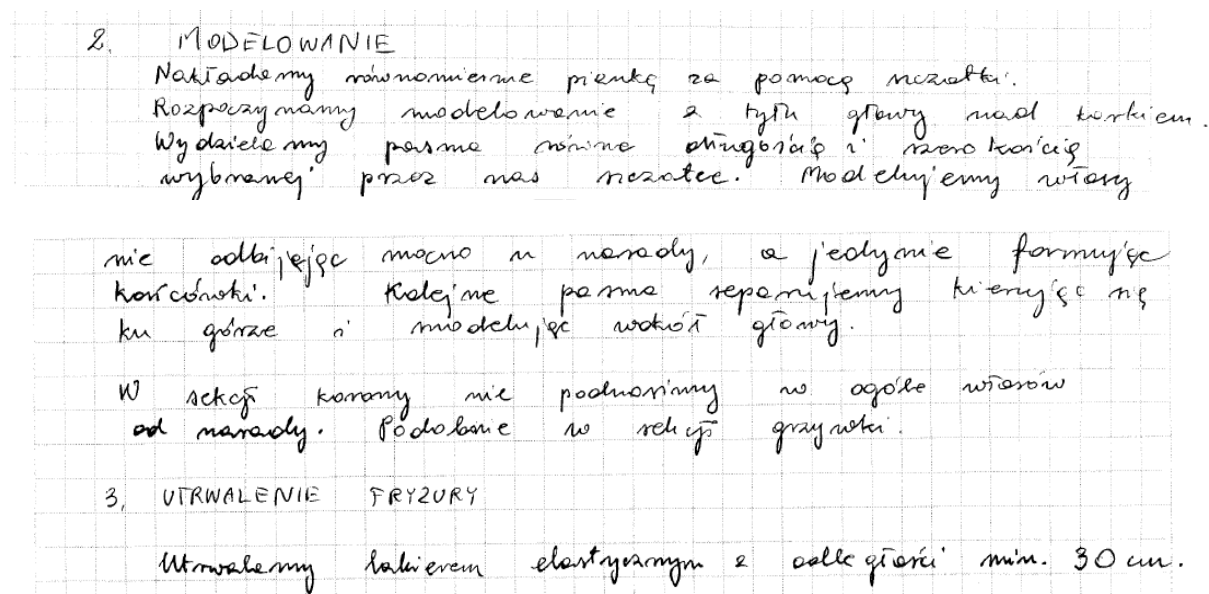 2. MODELOWANIE
Nakładamy równomiernie piankę za pomocą szczotki.
Rozpoczynamy modelowanie z tyłu głowy nad karkiem.
Wydzielamy pasma równe długością i szerokością
wybranej przez nas szczotce. Modelujemy włosy
nie odbijając mocno u nasady, a jedynie formując
końcówki. Kolejne pasma separujemy kierując się
ku górze i modelując wokół głowy.
W sekcji korony nie podnosimy w ogóle włosów
od nasady. Podobnie w sekcji grzywki.
3. UTRWALENIE FRYZURY
Utrwalamy lakierem elastycznym z odległości min. 30 cm.